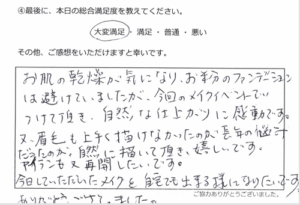 ④最後に、本日の総合満足度を教えてください。
大変満足 ・ 満足 ・ 普通 ・ 悪い
その他、ご感想をいただけますと幸いです。
お肌の乾燥が気になり、お粉のファンデーション
は避けていましたが、今回のメイクイベントで
つけて頂き、自然な仕上がりに感動です。
又、眉毛も上手く描けなかったのが長年の悩み
だったのが、自然に描いて頂き、嬉しいです。
も又再開したいです。
今日していただいたメイクを自宅でも出来る様になりたいです
ご協力ありがとうございました。